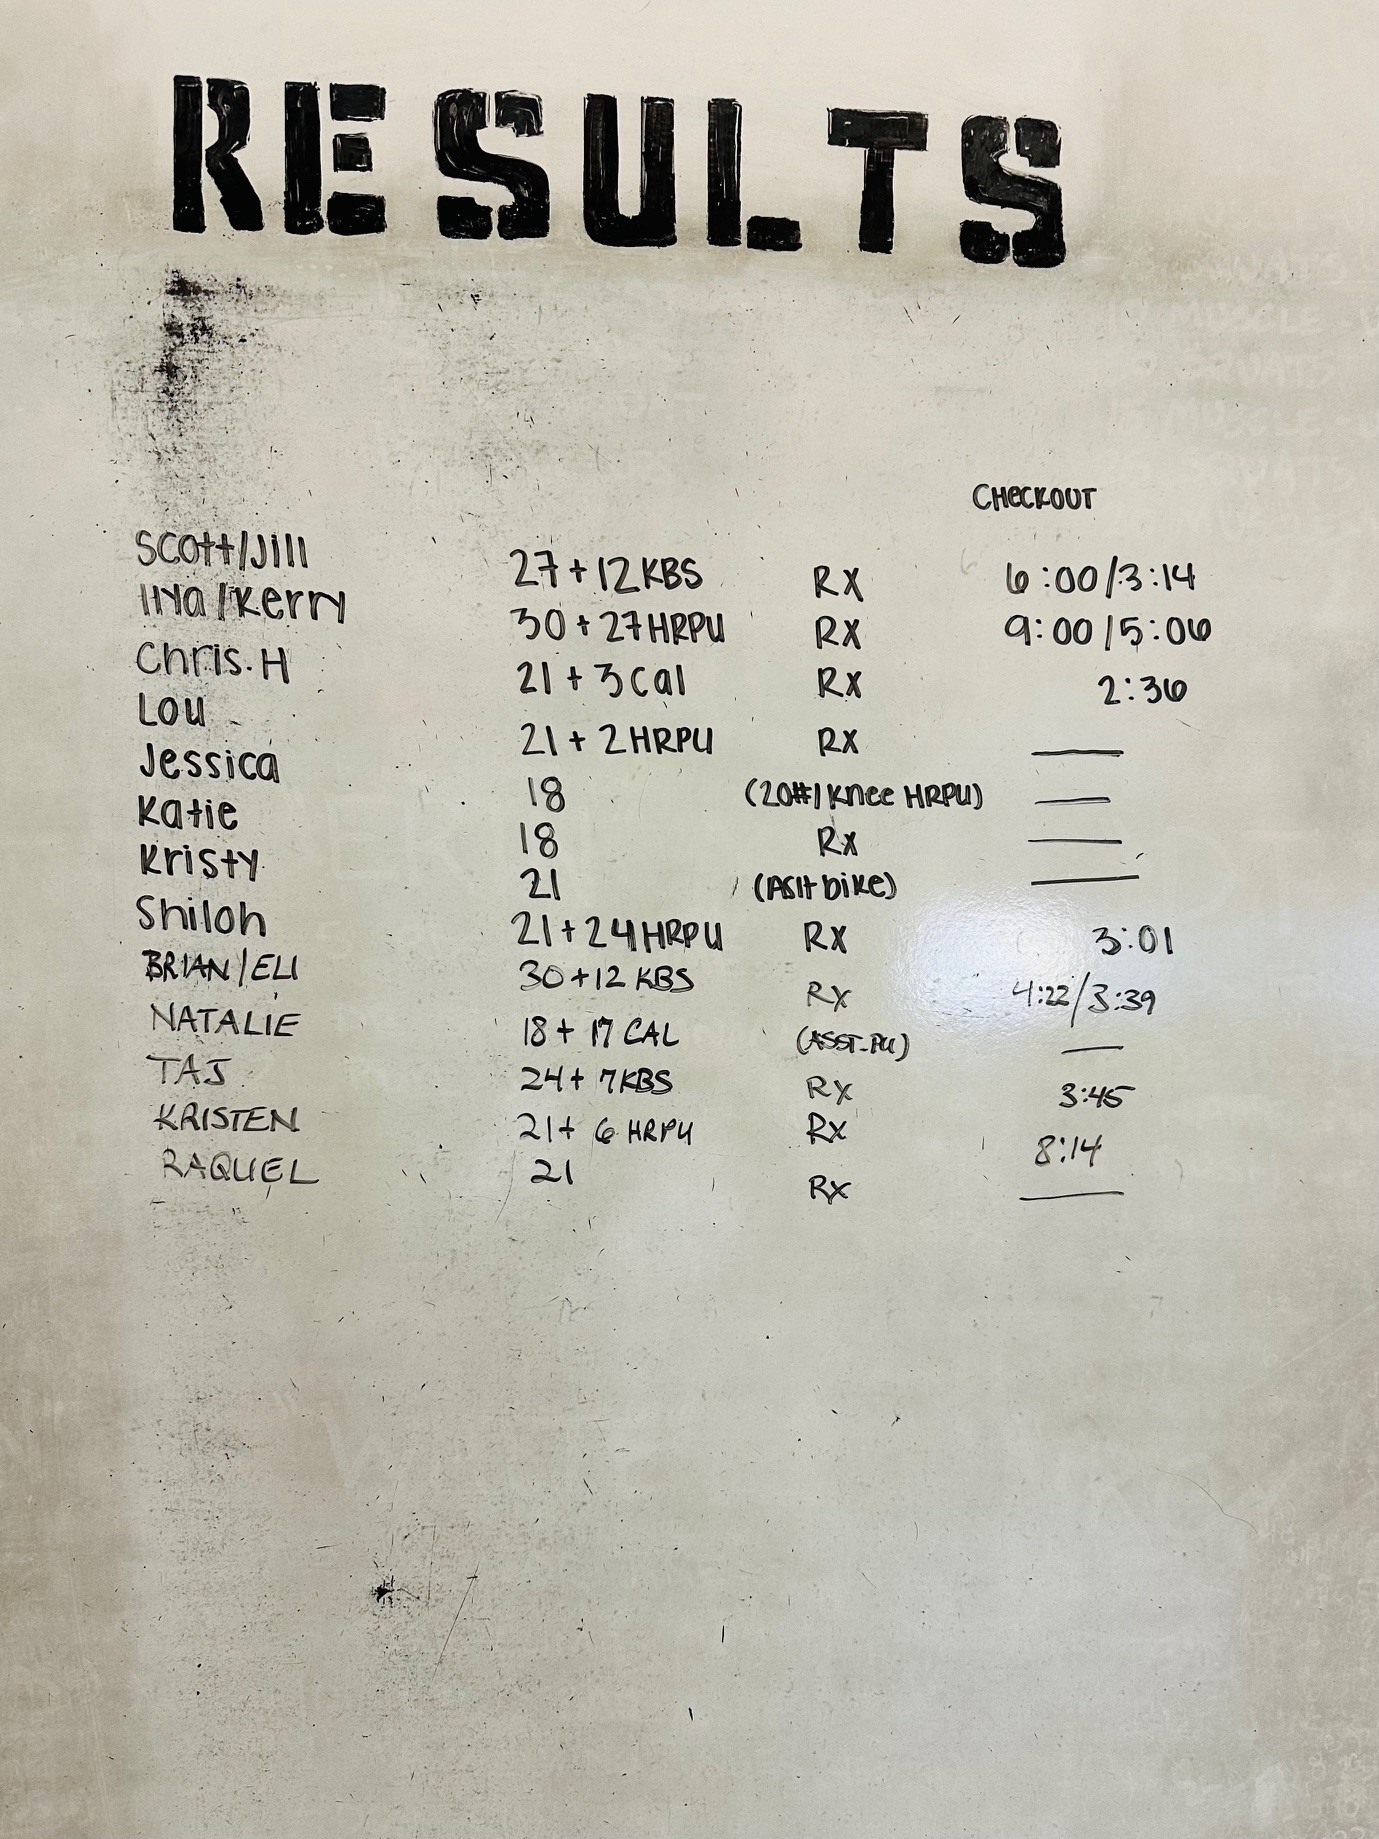 RESULTS
CHECKOUT
Scott/Jill 27 + 12 KBS RX 6:00/3:14
Ilya/Kerry 30 + 27 HRPU RX 9:00/5:06
Chris. H 21 + 3 Cal RX 2:36
Lou 21 + 2 HRPU RX —
Jessica 18 (20#/Knee HRPU) —
Katie 18 Rx —
Kristy 21 (Aslt bike) —
Shiloh 21 + 24 HRPU RX 3:01
BRIAN/ELI 30 + 12 KBS Rx 4:22/3:39
NATALIE 18 + 17 CAL (ASST-PU) —
TAJ 24 + 7 KBS Rx 3:45
KRISTEN 21 + 6 HRPU Rx 8:14
RAQUEL 21 Rx —